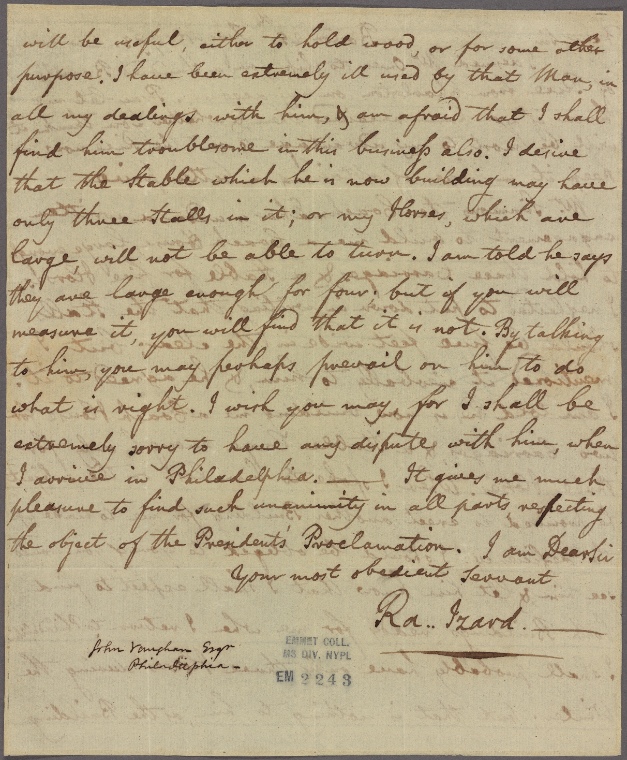 will be useful, either to hold wood, or for some other
purpose. I have been extremely ill used by that Man, in
all my dealings with him, & am afraid that I shall
find him troublesome in this business also. I desire
that the Stable which he is now building may have
only three Stalls in it; or my Horses, which are
large, will not be able to turn. I am told he says
they are large enough for four; but if you will
measure it, you will find that it is not. By talking
to him, you may perhaps prevail on him to do
what is right. I wish you may, for I shall be
extremely sorry to have any dispute with him, when
I arrive in Philadelphia. — It gives me much
pleasure to find such unanimity in all parts, respecting
the object of the Presidents Proclamation. I am Dear Sir
Your most obedient Servant
Ra.. Izard.
John Vaughan Esqr
Philadelphia
EMMET COLL.
MS DIV. NYPL
EM 2243